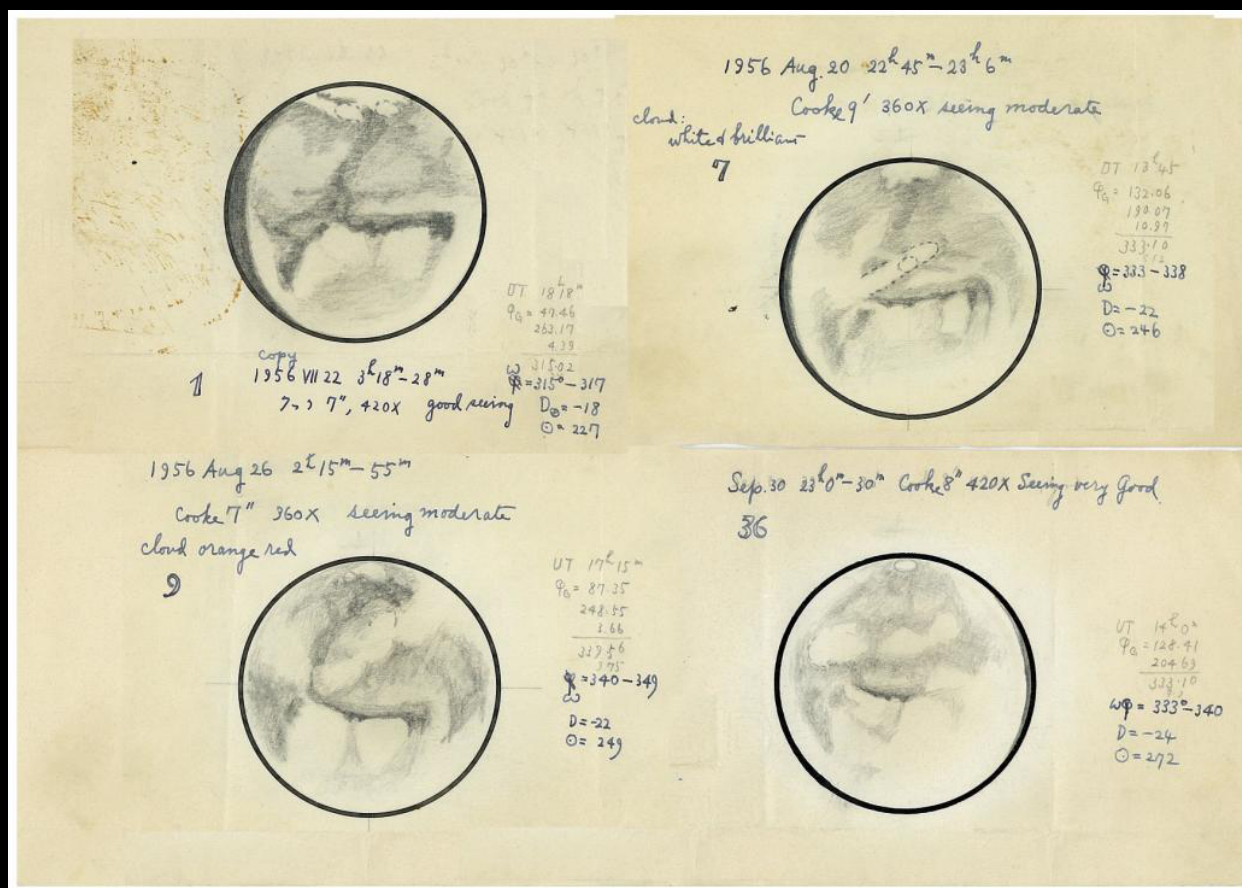 copy
1
1956 VII 22 3h18m–28m
7", 420X good seeing
UT 18h18m
φG = 47.46
263.17
4.39
315.02
ω
φ = 315°–317
D⊕ = –18
☉ = 227
1956 Aug. 20 22h45m–23h6m
Cooke 9' 360X seeing moderate
cloud:
white & brilliant
7
UT 13h45
φG = 132.06
190.07
10.97
333.10
φ = 333–338
ω
D = –22
☉ = 246
1956 Aug 26 2h15m–55m
Cooke 7" 360X seeing moderate
cloud orange red
9
UT 17h15m
φG = 87.35
248.55
3.66
339.56
φ = 340–349
ω
D = –22
☉ = 249
Sep. 30 23h0m–30m Cooke 8" 420X Seeing very Good
36
UT 14h0m
φG = 128.41
204.69
333.10
ωφ = 333°–340
D = –24
☉ = 272